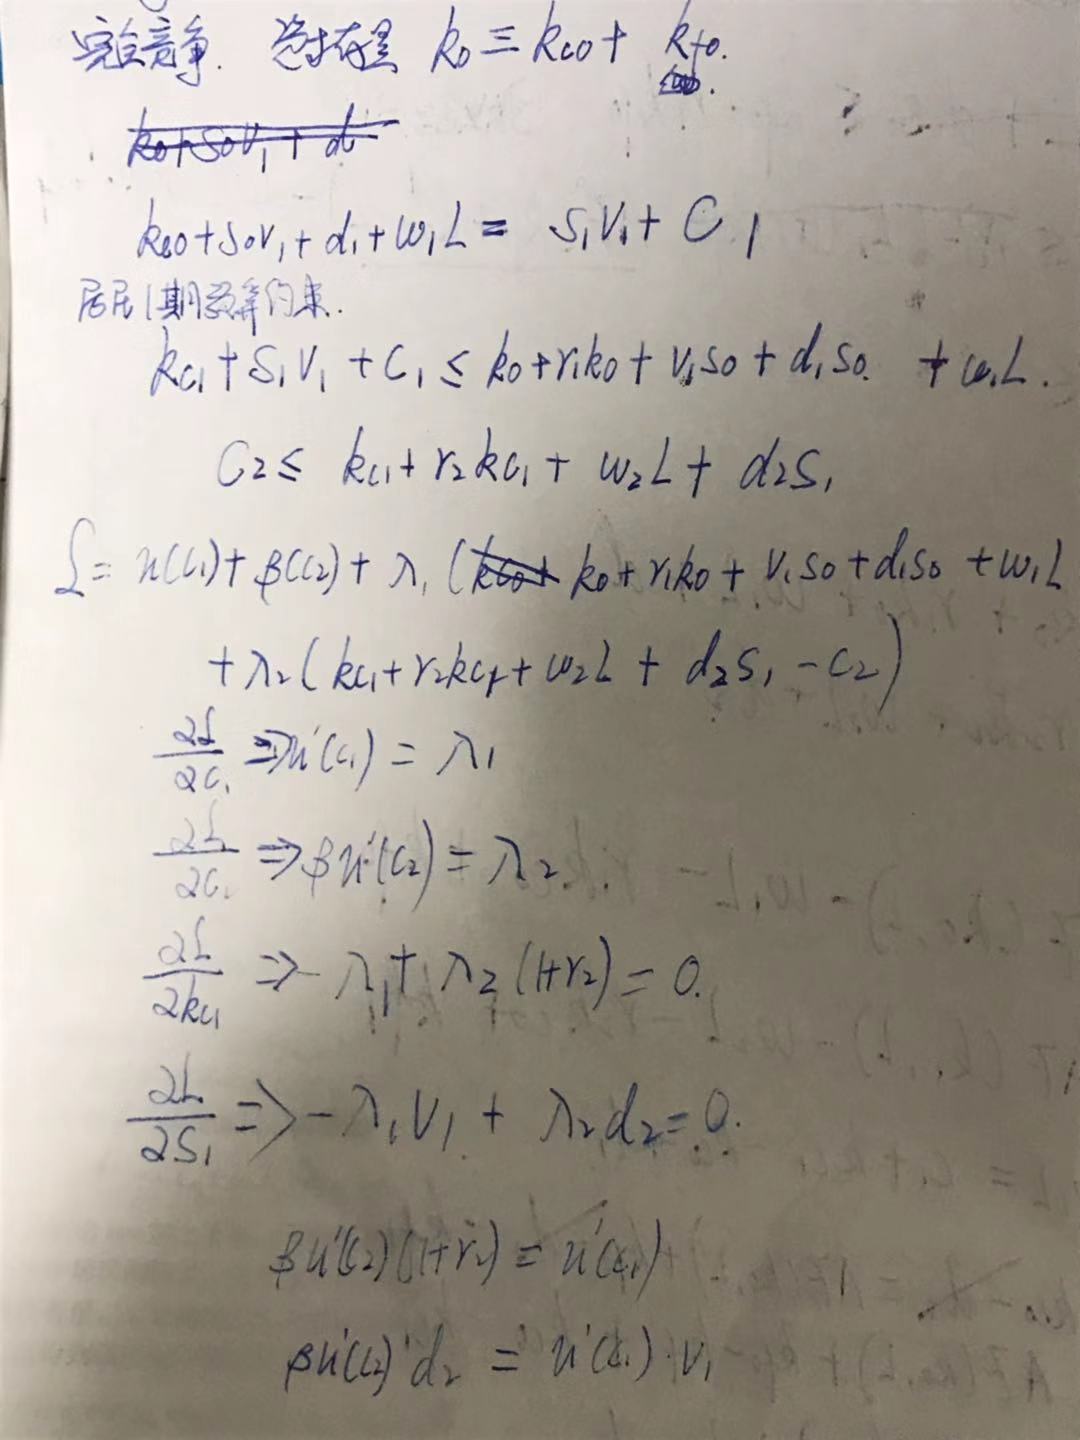 完全竞争. 总存量 k₀ ≡ kc₀ + kf₀.
k₀+S₀V₁+d
kc₀+S₀V₁+d₁+W₁L = S₁V₁+C₁
居民1期预算约束.
kc₁+S₁V₁+C₁ ≤ k₀+r₁k₀+V₁S₀+d₁S₀. +W₁L.
C₂ ≤ kc₁+r₂kc₁+W₂L+d₂S₁
L = u(C₁)+β(C₂)+λ₁(kc₀+ k₀+r₁k₀+V₁S₀+d₁S₀+W₁L
+λ₂(kc₁+r₂kc₁+W₂L+d₂S₁-C₂)
∂L/∂C₁ ⇒ u'(C₁) = λ₁
∂L/∂C₁ ⇒ βu'(C₂) = λ₂
∂L/∂kc₁ ⇒ -λ₁+λ₂(1+r₂) = 0.
∂L/∂S₁ ⇒ -λ₁V₁+λ₂d₂ = 0.
βu'(C₂)(1+r₂) = u'(C₁)
βu'(C₂)'d₂ = u'(C₁)·V₁